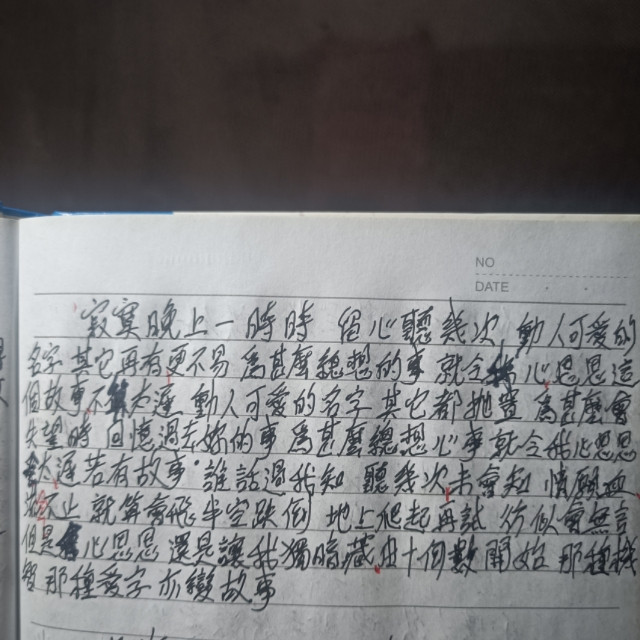 NO
DATE
寂寞晚上一時時 留心聽幾次 動人可愛的
名字 其它再有更不易 為甚麼總想的事 就令我心思思這
個故事不算太遲 動人可愛的名字 其它都拋豈 為甚麼會
失望時 回憶過去妳的事 為甚麼總想心事就令我心思思
太遲若有故事 誰話過我知 聽幾次未會知 情願血
止 就算會飛半空跌倒 地上爬起再試 仿似會無言
但是 心思思 還是讓我獨暗藏 由十個數開始 那種
那種愛字亦變故事